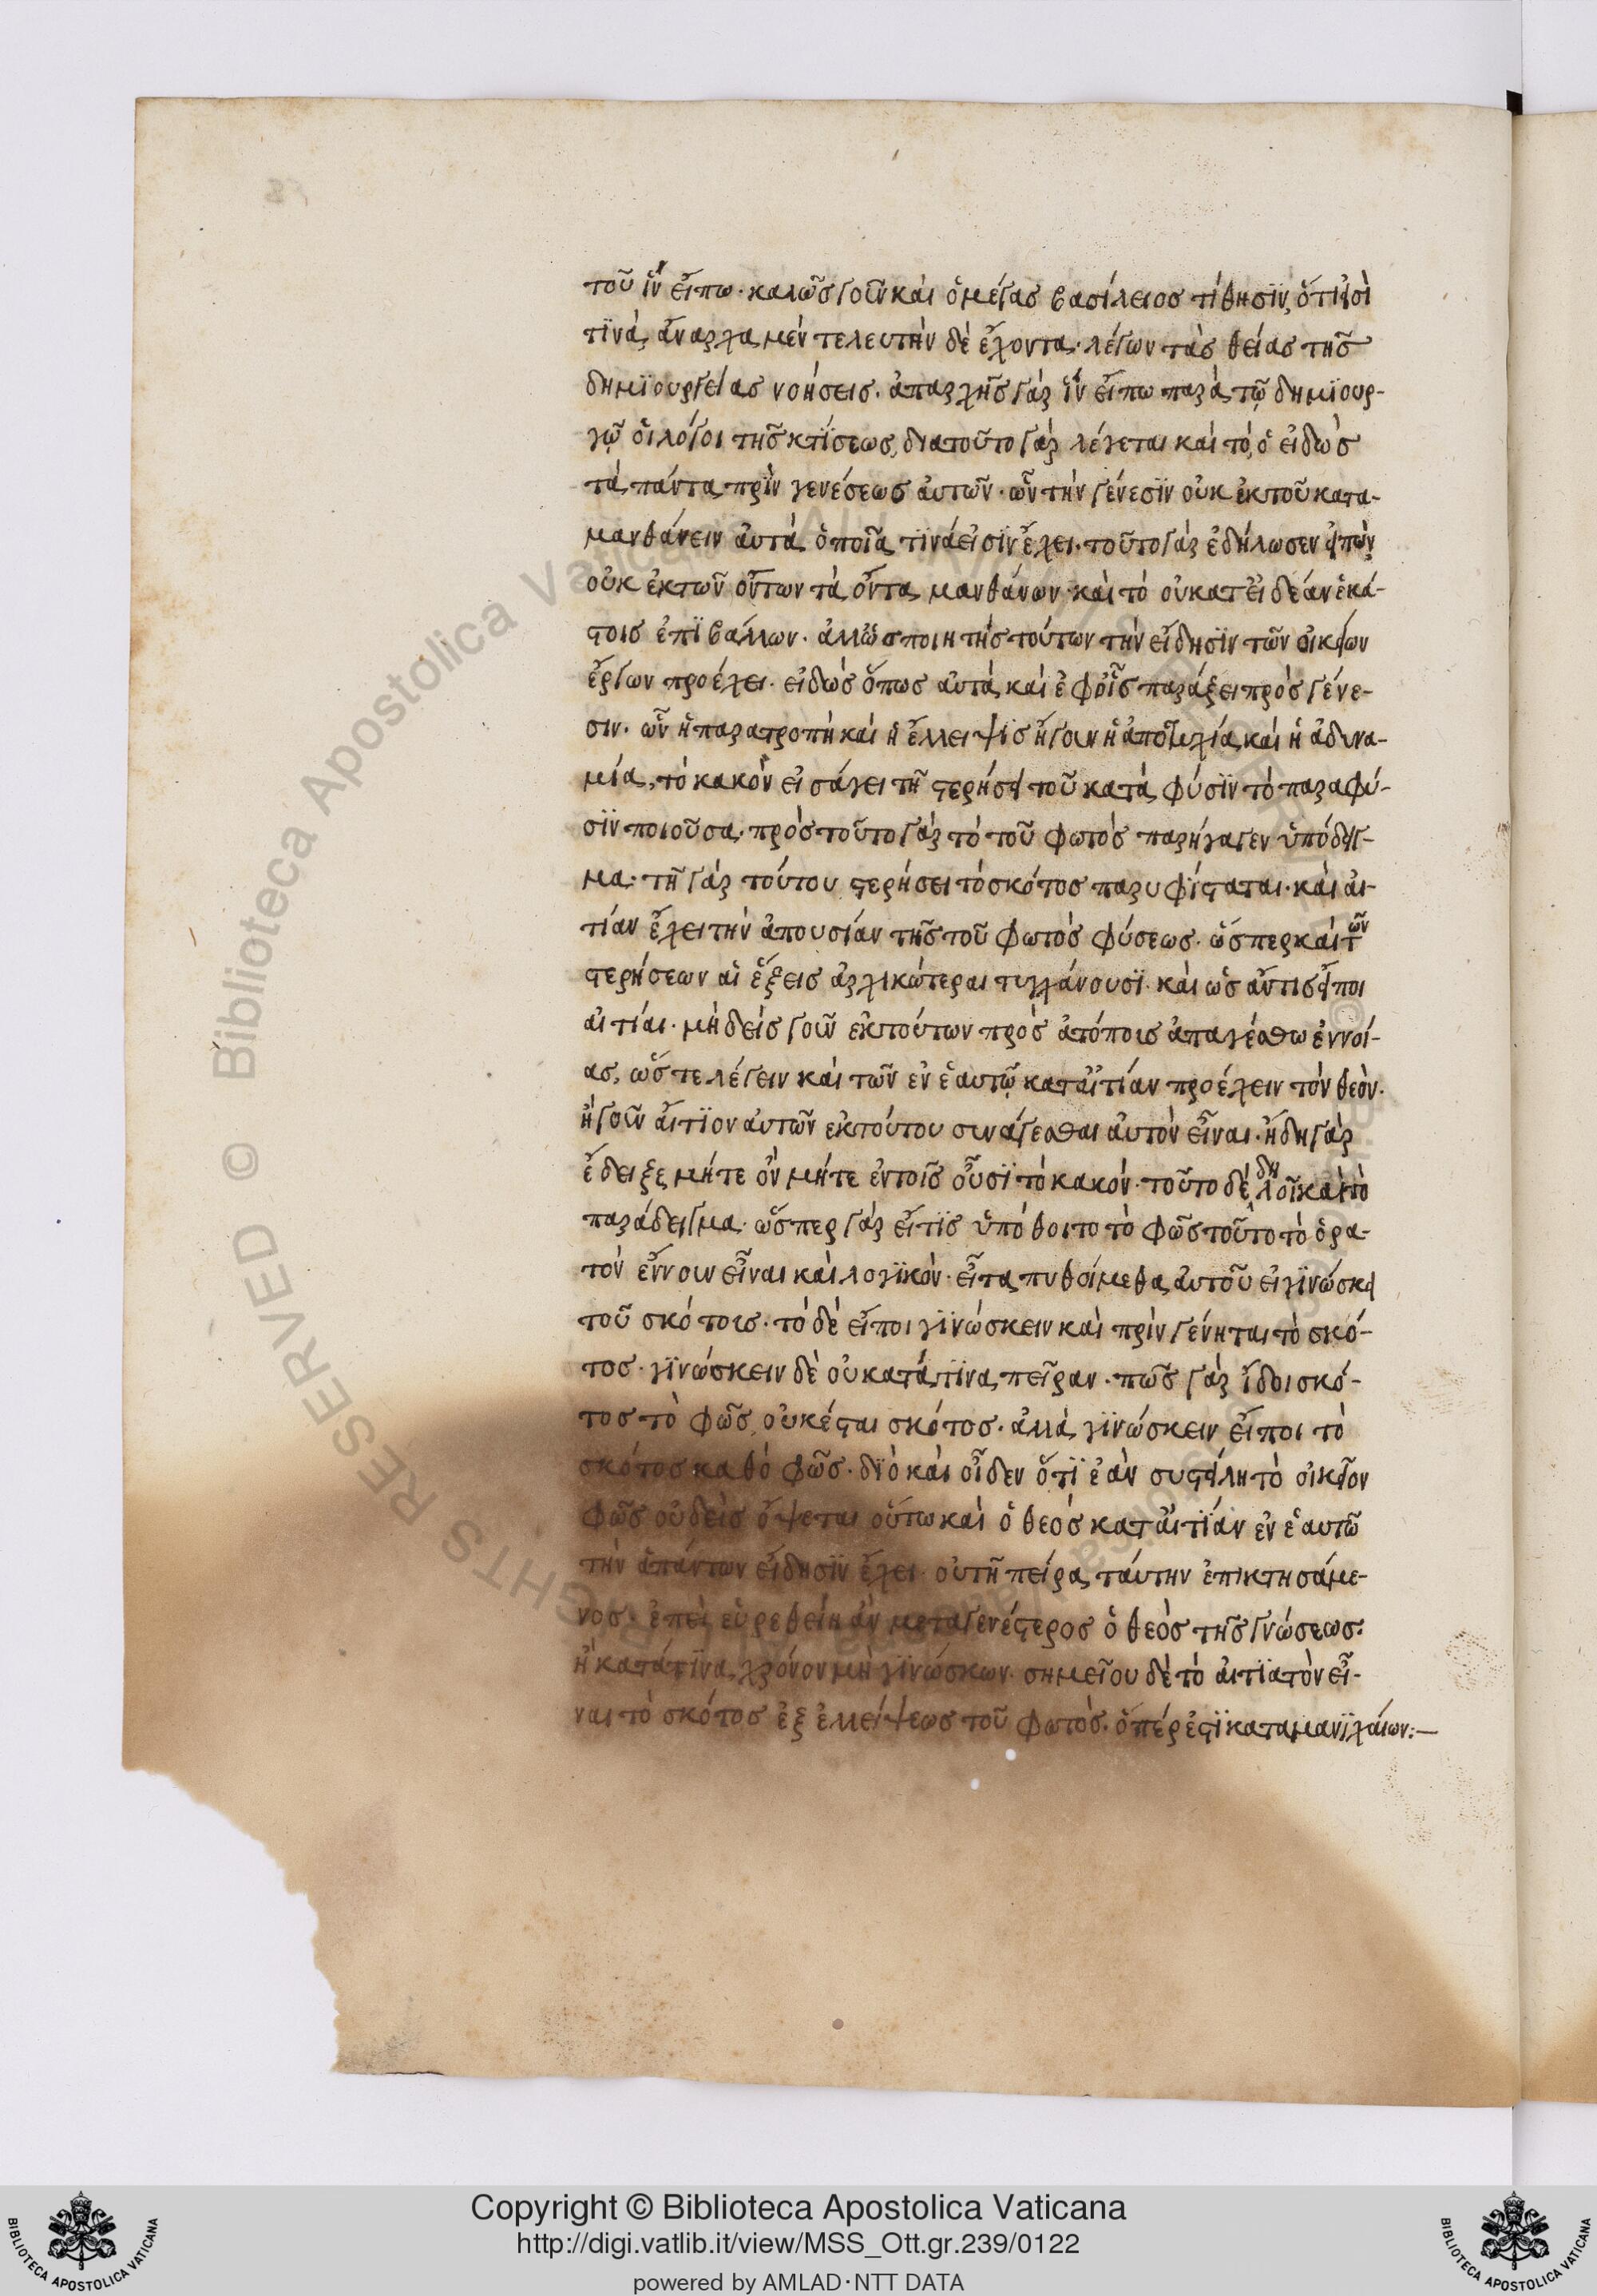 τοῦ ἵν εἴπω· καλῶς γοῦν καὶ ὁ μέγας βασίλειος τίθησϊν, ὅτι εἰσὶ
τϊνὰ ἄναρχα μὲν τελευτὴν δὲ ἔχοντα· λέγων τὰς θείας τῆς
δημϊουργείας νοήσεις. ἀπαρχῆς γὰρ ἵν εἴπω παρὰ τῷ δημϊουρ-
γῷ οἱ λόγοι τῆς κτίσεως, διατοῦτο γὰρ λέγεται καὶ τό, ὁ εἰδὼς
τὰ πάντα πρὶν γενέσεως ἀυτῶν· ὧν τὴν γένεσϊν οὐκ ἐκτοῦ κατα-
μανθάνειν ἀυτὰ ὁποῖα τϊνά εἰσϊν ἔχει. τοῦτο γὰρ ἐδήλωσεν εἰπὼν
οὐκ ἐκτῶν ὄντων τὰ ὄντα μανθάνων· καὶ τὸ οὐκατ εἰδέαν ἑκά-
στοις ἐπϊβάλλων. ἀλλ ὡς ποιητὴς τούτων τὴν εἴδησϊν τῶν οἰκείων
ἔργων προέχει. εἰδὼς ὅπως αὐτὰ καὶ ἐφ οἷς παράξει πρὸς γένε-
σιν. ὧν ἡ παρατροπὴ καὶ ἡ ἔλλειψϊς ἤγουν ἡ ἀποτυχία καὶ ἡ ἀδυνα-
μία, τὸ κακὸν εἰσάγει τῇ στερήσει τοῦ κατὰ φύσϊν τὸ παραφύ-
σϊν ποιοῦσα· πρὸς τοῦτο γὰρ τὸ τοῦ φωτὸς παρήγαγεν ὑπόδειγ-
μα· τῇ γὰρ τούτου στερήσει τὸ σκότος παρυφίσταται· καὶ ἀι-
τίαν ἔχει τὴν ἀπουσίαν τῆς τοῦ φωτὸς φύσεως. ὥσπερ καὶ τῶν
στερήσεων αἱ ἕξεις ἀρχικώτεραι τυγχάνουσϊ· καὶ ὡς ἄν τις εἴποι
αἰτίαι· μὴ δεὶς γοῦν ἐκτούτων πρὸς ἀτόποις ἀπαγέσθω ἐννοί-
ας, ὥστε λέγειν καὶ τῶν ἐν ἑαυτῷ κατ αἰτίαν προέχειν τὸν θεὸν.
ἤγουν ἄιτϊον ἀυτῶν ἐκτούτου συνάγεσθαι ἀυτὸν εἶναι. ἤδη γὰρ
ἔδειξε μήτε ὂν μήτε ἐντοῖς οὖσϊ τὸ κακόν· τοῦτο δὲ δηλοῖ καὶ τὸ
παράδειγμα· ὥσπερ γὰρ εἴ τϊς ὑπόθοιτο τὸ φῶς τοῦτο τὸ ὁρα-
τὸν ἔννουν εἶναι καὶ λογϊκὸν· εἶτα πυθοίμεθα ἀυτοῦ εἰ γϊνώσκει
τοῦ σκότοις· τὸ δὲ εἴποι γϊνώσκειν καὶ πρὶν γένηται τὸ σκό-
τος· γϊνώσκειν δὲ οὐ κατά τϊνα πεῖραν· πῶς γὰρ ἴδοι σκό-
τος τὸ φῶς, οὐκ έσται σκότος· ἀλλὰ γϊνώσκειν εἴποι τὸ
σκότος καθὸ φῶς· δϊὸ καὶ οἶδεν ὅτϊ ἐὰν συστείλη τὸ οἰκεῖον
φῶς οὐδεὶς ὄψεται οὕτω καὶ ὁ θεός κατ ἀιτϊάν ἐν ἑαυτῷ
τὴν ἁπάντων εἴδησϊν ἔχει· οὐ τῆ πείρα ταύτην ἐπικτησάμε-
νος· ἐπεὶ εὑρεθείη ἂν μεταγενέστερος ὁ θεὸς τῆς γνώσεως.
ἢ κατά τϊνα χρόνον μὴ γϊνώσκων· σημεῖου δὲ τὸ ἀιτϊατὸν εἶ-
ναι τὸ σκότος ἐξ ἐλλείψεως τοῦ φωτός· ὅπέρ ἐστϊ καταμανϊχαίων:—
Copyright © Biblioteca Apostolica Vaticana
http://digi.vatlib.it/view/MSS_Ott.gr.239/0122
powered by AMLAD·NTT DATA